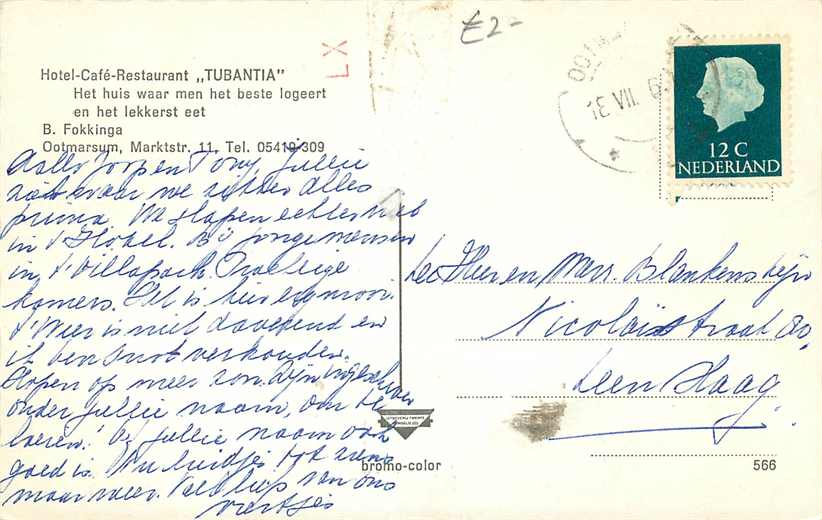 £2-
LX
Hotel-Café-Restaurant „TUBANTIA"
Het huis waar men het beste logeert
en het lekkerst eet
B. Fokkinga
Ootmarsum, Marktstr. 11, Tel. 05419-309
18 VII 6
12 C
NEDERLAND
en Tony, jullie
zitten alles
prima. We slapen echter niet
in 't Hotel. Bij jonge mensen
in 't Villapark.
kamers. Het is hier erg mooi.
't Weer is niet daverend en
ik ben snot verkouden.
Hopen op meer zon. Zijn ingeschreven
onder jullie naam,
jullie naam ook
goed is. Nu luidjes tot ziens
maar weer. Veel liefs van ons
viertjes
De Heer en Mevr. Blankensteijn
Nicolaïstraat 80,
Den Haag.
bromo-color
566